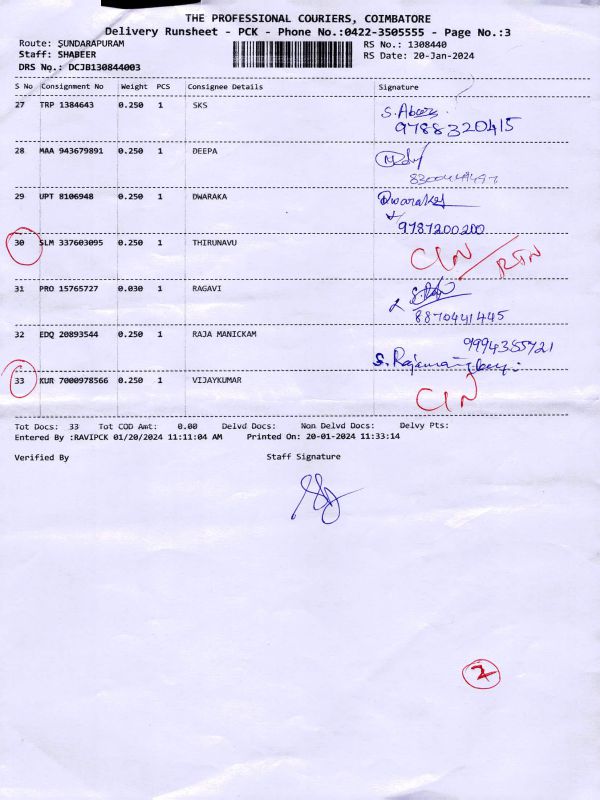 THE PROFESSIONAL COURIERS, COIMBATORE
Delivery Runsheet - PCK - Phone No.:0422-3505555 - Page No.:3
Route: SUNDARAPURAM RS No.: 1308440
Staff: SHABEER RS Date: 20-Jan-2024
DRS No.: DCJB130844003
S No Consignment No Weight PCS Consignee Details Signature
27 TRP 1384643 0.250 1 SKS
9788320415
28 MAA 943679891 0.250 1 DEEPA
29 UPT 8106948 0.250 1 DWARAKA Dwaraka
9787200200
30 SLM 337603095 0.250 1 THIRUNAVU CIN / RTN
31 PRO 15765727 0.030 1 RAGAVI
8870441445
32 EDQ 20893544 0.250 1 RAJA MANICKAM 9994355721
33 KUR 7000978566 0.250 1 VIJAYKUMAR CIN
Tot Docs: 33 Tot COD Amt: 0.00 Delvd Docs: Non Delvd Docs: Delvy Pts:
Entered By :RAVIPCK 01/20/2024 11:11:04 AM Printed On: 20-01-2024 11:33:14
Verified By Staff Signature
2